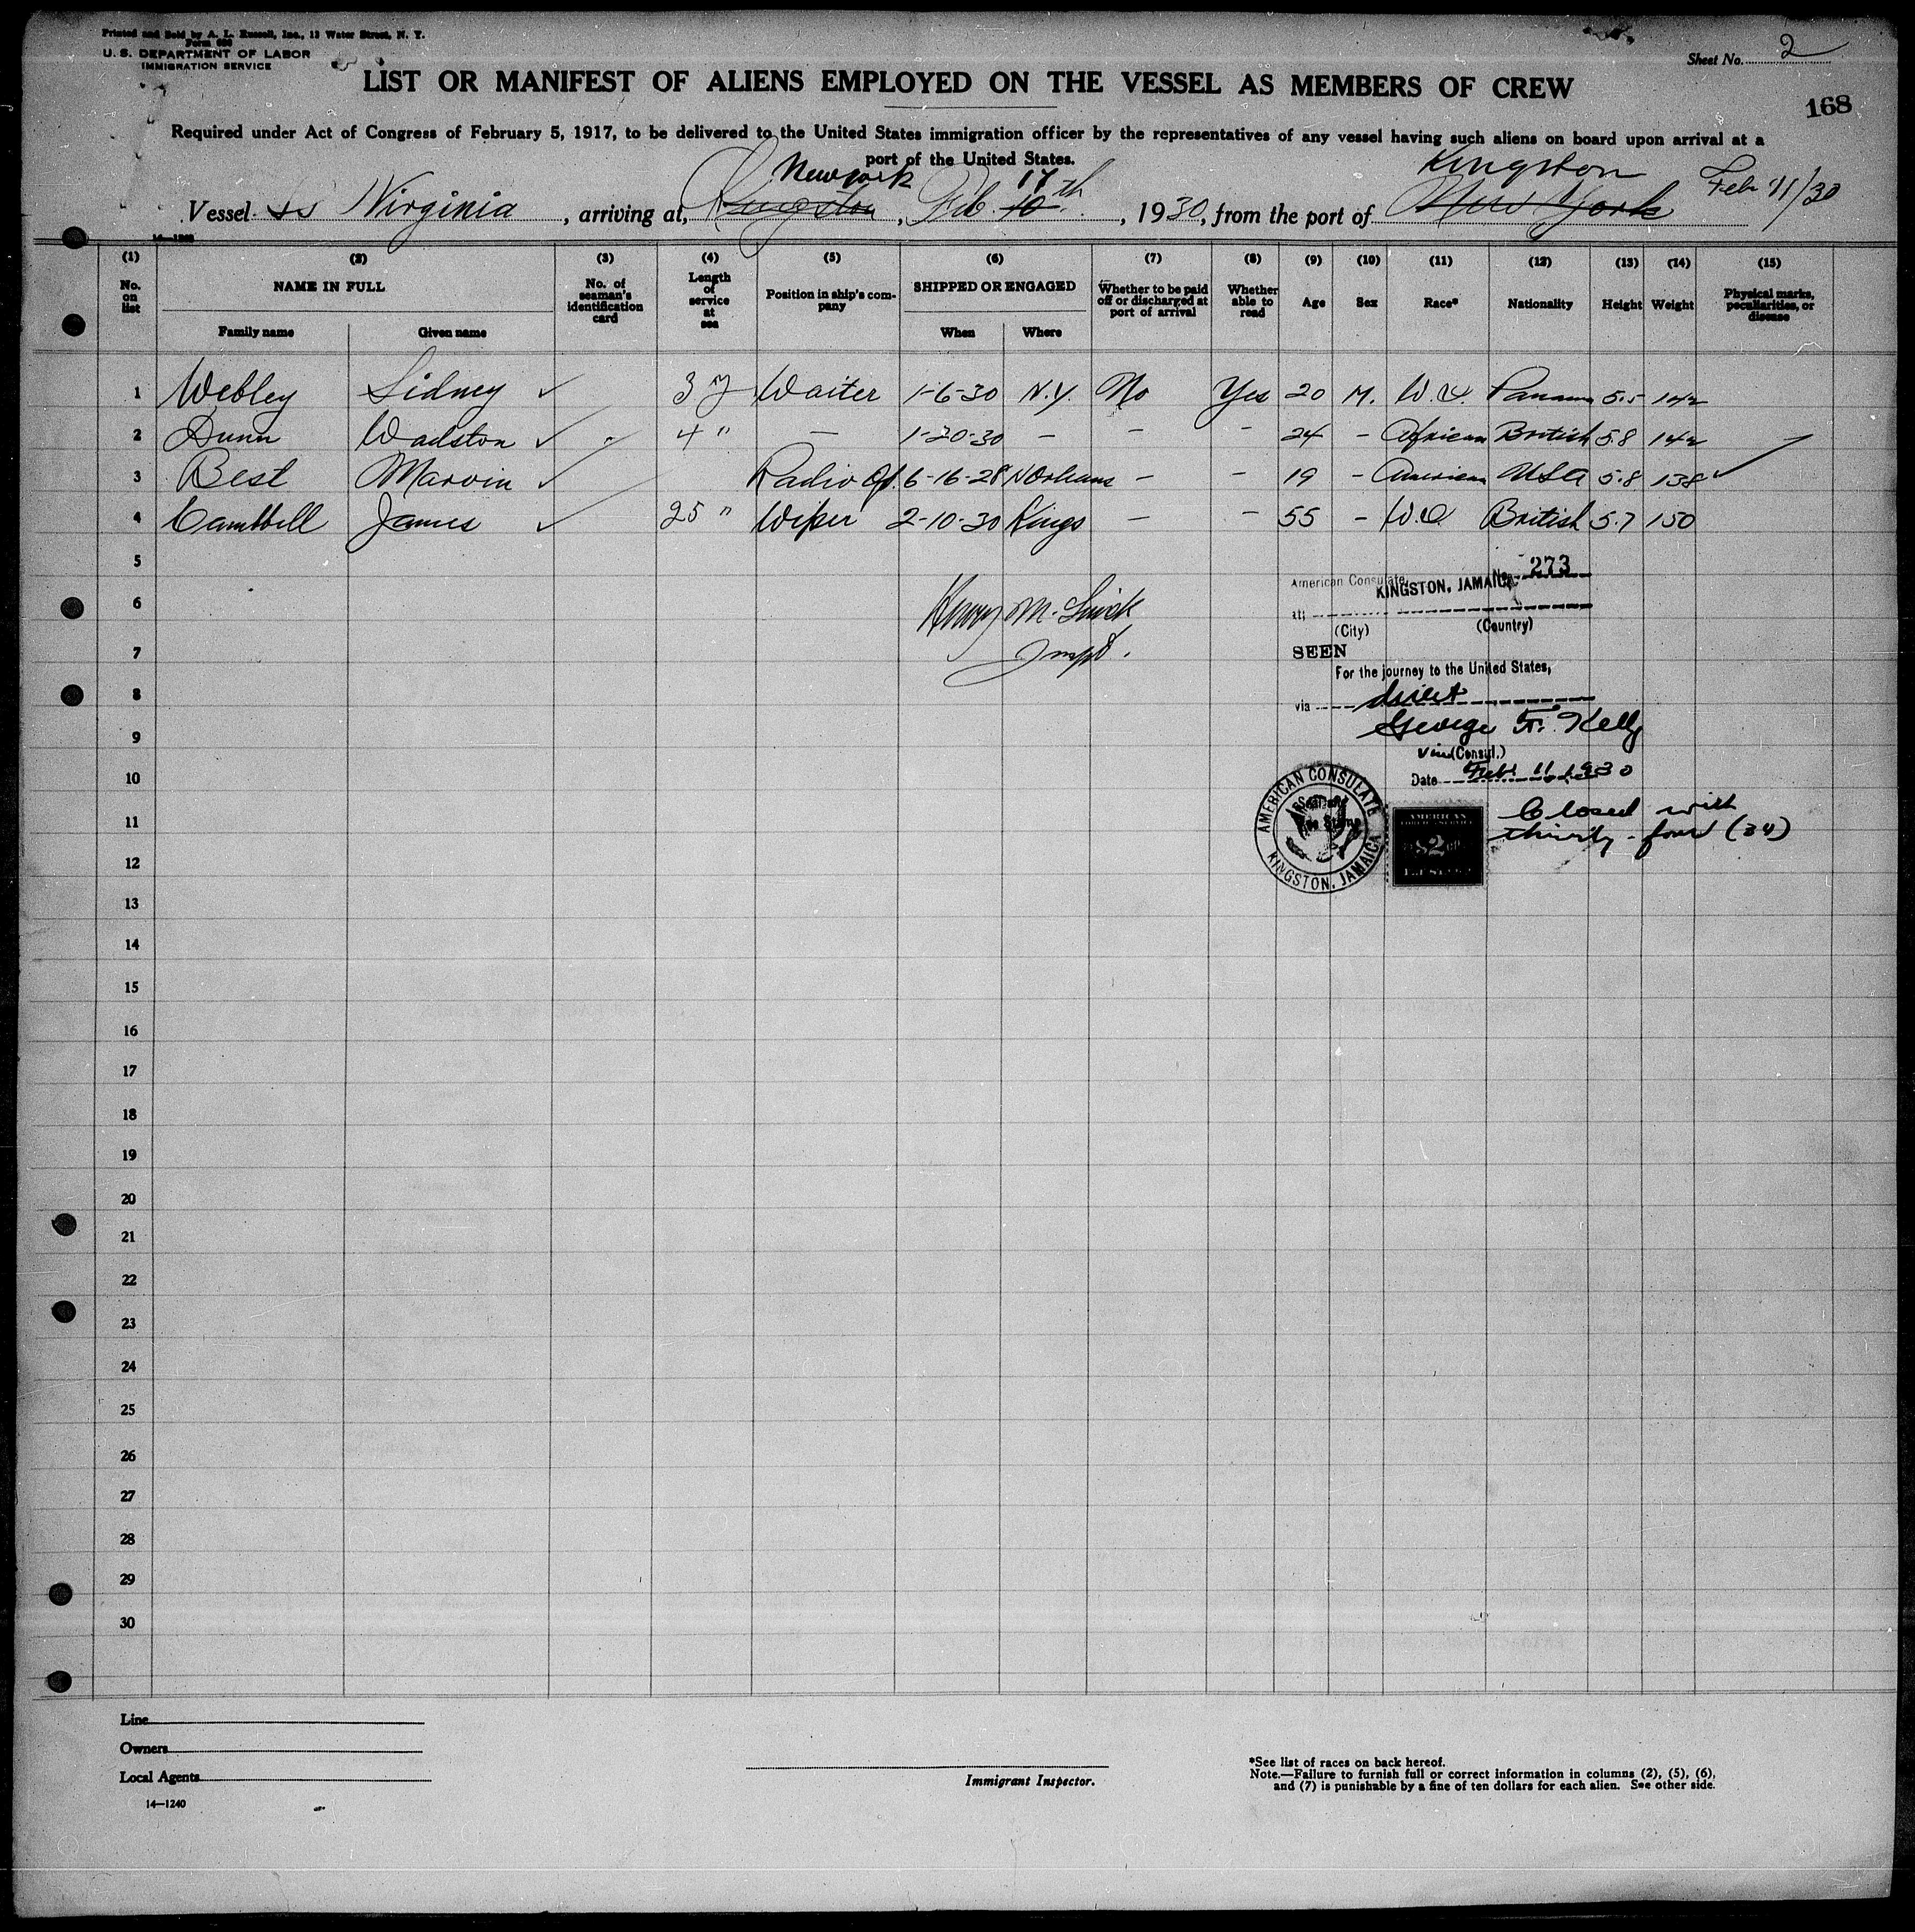 Printed and Sold by A. L. Russell, Inc., 13 Water Street, N. Y.
Form 686
U. S. DEPARTMENT OF LABOR
IMMIGRATION SERVICE
Sheet No. 2
LIST OR MANIFEST OF ALIENS EMPLOYED ON THE VESSEL AS MEMBERS OF CREW
168
Required under Act of Congress of February 5, 1917, to be delivered to the United States immigration officer by the representatives of any vessel having such aliens on board upon arrival at a
port of the United States.
New York 17 Kingston Feb 11/30
Vessel SS Virginia, arriving at Kingston, Feb. 10th, 1930, from the port of New York
(1) (2) (3) (4) (5) (6) (7) (8) (9) (10) (11) (12) (13) (14) (15)
No. on list NAME IN FULL No. of seaman's identification card Length of service at sea Position in ship's company SHIPPED OR ENGAGED Whether to be paid off or discharged at port of arrival Whether able to read Age Sex Race* Nationality Height Weight Physical marks, peculiarities, or disease
Family name Given name When Where
1 Webley Sidney ✓ 3 y Waiter 1-6-30 N.Y. No Yes 20 M. W.I. Panama 5.5 142
2 Dunn Walston ✓ 4 " — 1-20-30 — — — 24 — African British 5.8 142
3 Best Marvin ✓ Radio Op. 6-16-28 N Orleans — — 19 — American USA 5.8 138 ✓
4 Cambell James ✓ 25 " Wiper 2-10-30 Kings — — 55 — W.I. British 5.7 150
5
American Consulate No. 273
KINGSTON, JAMAICA
6
at
(City) (Country)
Henry M.
7
Inspt.
SEEN
For the journey to the United States,
8
via direct
9
George F. Kelly
Vice (Consul.)
10
Date Feb 11 1930
AMERICAN CONSULATE
KINGSTON, JAMAICA
AMERICAN
$2
Closed with
11
thirty-four (34)
12
13
14
15
16
17
18
19
20
21
22
23
24
25
26
27
28
29
30
Line
Owners
Local Agents
14—1240
Immigrant Inspector.
*See list of races on back hereof.
Note.—Failure to furnish full or correct information in columns (2), (5), (6),
and (7) is punishable by a fine of ten dollars for each alien. See other side.